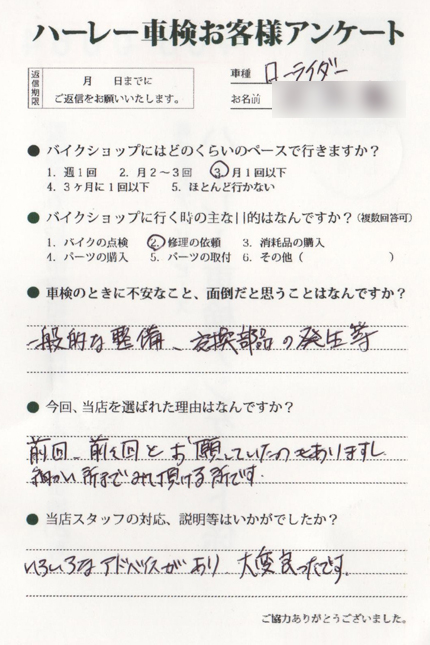 ハーレー車検お客様アンケート
返信期限
月　　日までに
ご返信をお願いいたします。
車種　ローライダー
お名前
● バイクショップにはどのくらいのペースで行きますか？
1. 週1回　2. 月2～3回　3. 月1回以下
4. 3ヶ月に1回以下　5. ほとんど行かない
● バイクショップに行く時の主な目的はなんですか？（複数回答可）
1. バイクの点検　2. 修理の依頼　3. 消耗品の購入
4. パーツの購入　5. パーツの取付　6. その他（　　　　　　）
● 車検のときに不安なこと、面倒だと思うことはなんですか？
一般的な整備、交換部品の発生等
● 今回、当店を選ばれた理由はなんですか？
前回、前々回とお願していたのもありますし
細かい所までみて頂ける所です。
● 当店スタッフの対応、説明等はいかがでしたか？
いろいろなアドバイスがあり、大変良ったです。
ご協力ありがとうございました。